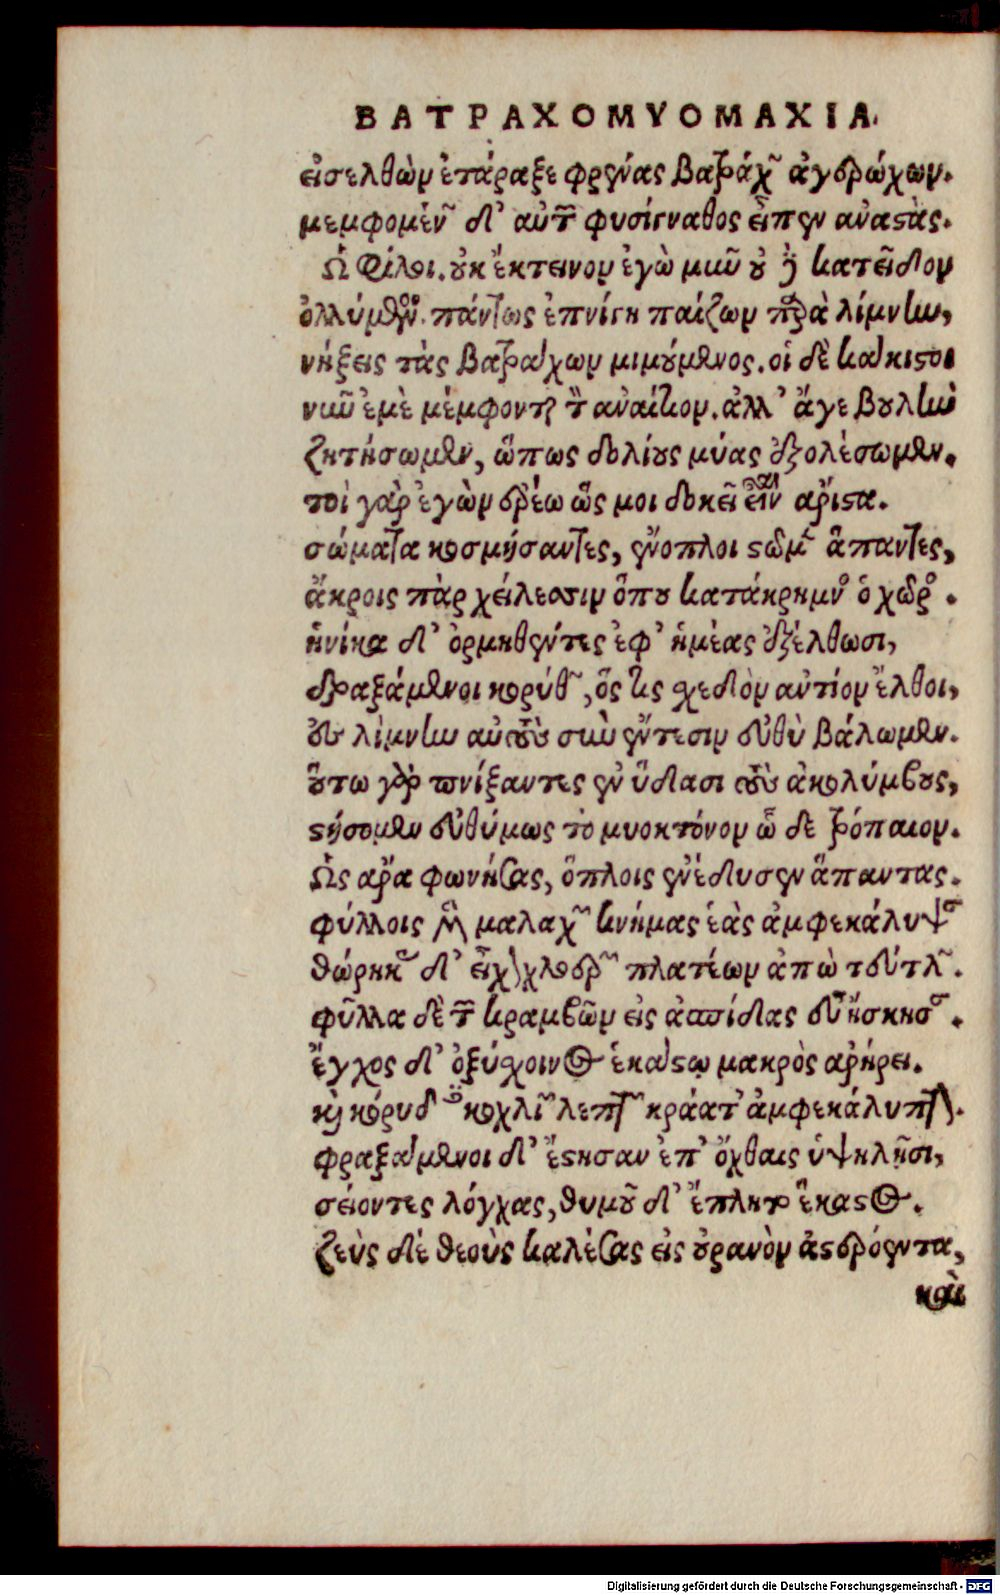 ΒΑΤΡΑΧΟΜΥΟΜΑΧΙΑ.
εἰσελθὼν ἐτάραξε φρένας βατράχων ἀγερώχων.
μεμφομένων δ' αὐτῶν φυσίγναθος εἶπεν ἀναστὰς.
Ὦ Φίλοι. οὐκ ἔκτεινον ἐγὼ μῦν οὐδὲ κατεῖδον
ὀλλύμενον. πάντως ἐπνίγη παίζων παρὰ λίμνην,
νήξεις τὰς βατράχων μιμούμενος. οἱ δὲ κάκιστοι
νῦν ἐμὲ μέμφονται τὸν ἀναίτιον. ἀλλ' ἄγε βουλὴν
ζητήσωμεν, ὅπως δολίους μύας ἐξολέσωμεν.
τοὶ γὰρ ἐγὼν ἐρέω ὥς μοι δοκεῖ εἶναι ἄριστα.
σώματα κοσμήσαντες, ἔνοπλοι στῶμεν ἅπαντες,
ἄκροις πὰρ χείλεσσιν ὅπου κατάκρημνος ὁ χῶρος.
ἡνίκα δ' ὁρμηθέντες ἐφ' ἡμέας ἐξέλθωσι,
δραξάμενοι κορύθων, ὅς τις σχεδὸν ἀντίον ἔλθοι,
ἐς λίμνην αὐτοὺς σὺν ἔντεσιν εὐθὺ βάλωμεν.
οὕτω γὰρ πνίξαντες ἐν ὕδασι τοὺς ἀκολύμβους,
στήσομεν εὐθύμως τὸ μυοκτόνον ὧδε τρόπαιον.
Ὣς ἄρα φωνήσας, ὅπλοις ἐνέδυσεν ἅπαντας.
φύλλοις μὲν μαλαχῶν κνήμας ἑὰς ἀμφεκάλυψαν
θώρηκας δ' εἶχον χλοερῶν πλατέων ἀπὼ τεύτλων.
φῦλλα δὲ τῶν κραμβῶν εἰς ἀσπίδας εὖ ἤσκησαν.
ἔγχος δ' ὀξύσχοινος ἑκάστῳ μακρὸς ἀρήρει.
καὶ κόρυθες κοχλιῶν λεπτῶν κράατ' ἀμφεκάλυπτον.
φραξάμενοι δ' ἔστησαν ἐπ' ὄχθαις ὑψηλῇσι,
σείοντες λόγχας, θυμοῦ δ' ἔπλητο ἕκαστος.
ζεὺς δὲ θεοὺς καλέσας εἰς οὐρανὸν ἀστερόεντα,
καὶ
Digitalisierung gefördert durch die Deutsche Forschungsgemeinschaft - DFG